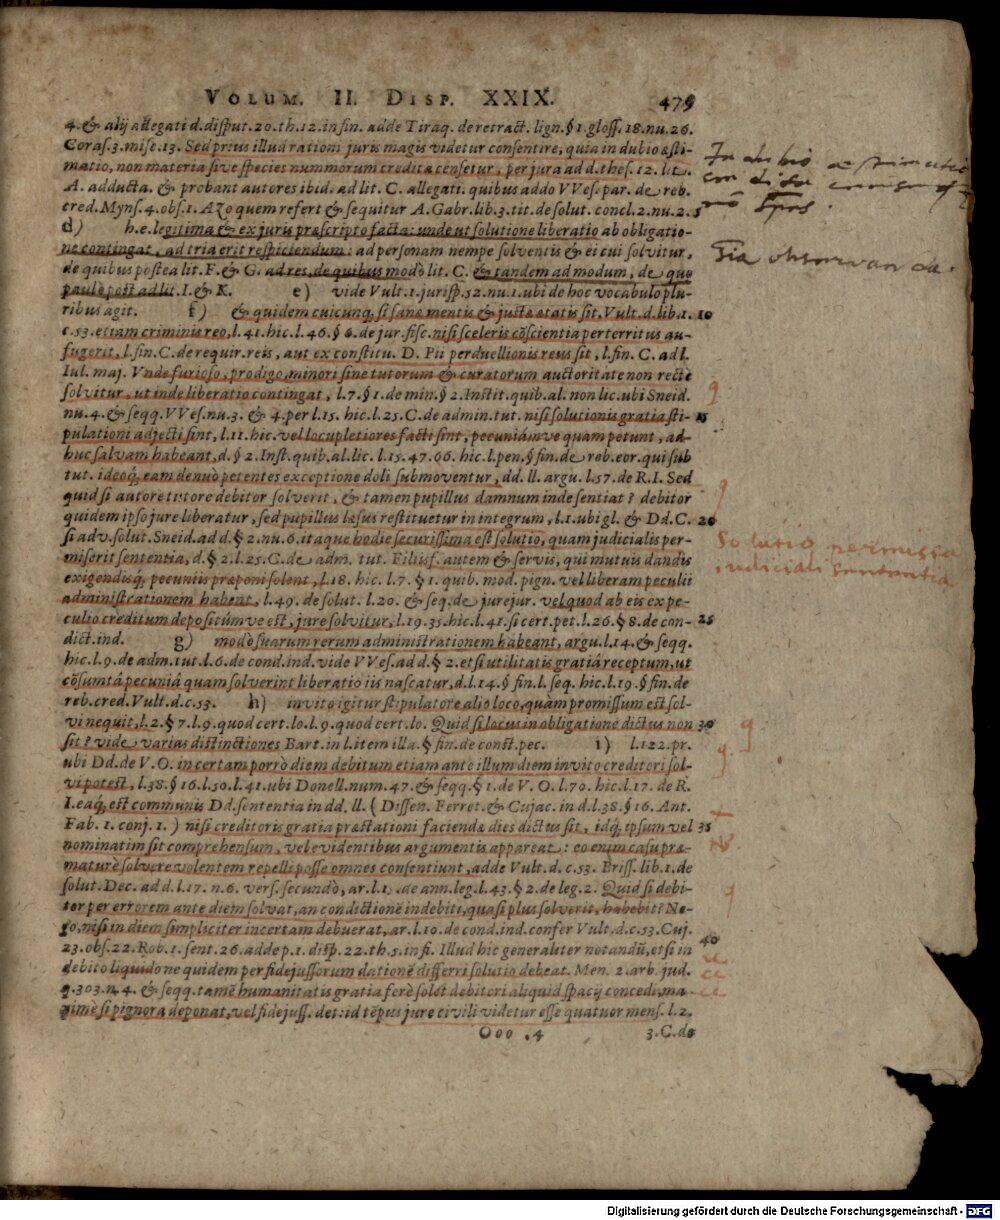 VOLUM. II. DISP. XXIX. 479
4. & alij allegati d. disput. 20. th. 12. in fin. adde Tiraq. de retract. lign. § 1. gloss. 18. nu. 26.
Coras. 3. misc. 13. Sed prius illud rationi juris magis videtur consentire, quia in dubio æsti-
matio, non materia sive species nummorum credita censetur, per jura ad d. thes. 12. lit.
A. adducta. & probant autores ibid. ad lit. C. allegati. quibus addo VVes. par. de reb.
cred. Myns. 4. obs. 1. Azo quem refert & sequitur A. Gabr. lib. 3. tit. de solut. concl. 2. nu. 2. 5
d) h. e. legitima & ex juris præscripto facta: unde ut solutione liberatio ab obligatio-
ne contingat, ad tria erit respiciendum: ad personam nempe solventis & ei cui solvitur,
de quibus postea lit. F. & G. ad res, de quibus modò lit. C. & tandem ad modum, de quo
paulò post ad lit. I. & K. e) vide Vult. 1. jurisp. 52. nu. 1. ubi de hoc vocabulo plu-
ribus agit. f) & quidem cuicunq, si sanæ mentis & justæ ætatis sit, Vult. d. lib. 1. 10
c. 53. etiam criminis reo, l. 41. hic. l. 46. § 6. de jur. fisc. nisi sceleris cõscientia perterritus au-
fugerit, l. fin. C. de requir. reis, aut ex constitu. D. Pii perduellionis reus sit, l. fin. C. ad l.
Iul. maj. Vnde furioso, prodigo, minori sine tutorum & curatorum auctoritate non rectè
solvitur, ut inde liberatio contingat, l. 7. § 1. de min. § 2. Instit. quib. al. non lic. ubi Sneid.
nu. 4. & seqq. VVes. nu. 3. & 4. per l. 15. hic. l. 25. C. de admin. tut. nisi solutionis gratia sti- 15
pulationi adjecti sint, l. 11. hic. vel locupletiores facti sint, pecuniámve quam petunt, ad-
huc salvam habeant, d. § 2. Inst. quib. al. lic. l. 15. 47. 66. hic. l. pen. § fin. de reb. eor. qui sub
tut. ideoq, eam denuò petentes exceptione doli submoventur, dd. ll. argu. l. 57. de R. I. Sed
quid si autore tutore debitor solverit, & tamen pupillus damnum inde sentiat? debitor
quidem ipso jure liberatur, sed pupillus læsus restituetur in integrum, l. 1. ubi gl. & Dd. C. 20
si adv. solut. Sneid. ad d. § 2. nu. 6. itaque hodie securissima est solutio, quam judicialis per-
miserit sententia, d. § 2. l. 25. C. de adm. tut. Filiisf. autem & servis, qui mutuis dandis
exigendisq, pecuniis præponi solent, l. 18. hic. l. 7. § 1. quib. mod. pign. vel liberam peculii
administrationem habent, l. 49. de solut. l. 20. & seq. de jurejur. vel quod ab eis ex pe-
culio creditum depositúmve est, jure solvitur, l. 19. 35. hic. l. 41. si cert. pet. l. 26. § 8. de con- 25
dict. ind. g) modò suarum rerum administrationem habeant, argu. l. 14. & seqq.
hic. l. 9. de adm. tut. l. 6. de cond. ind. vide VVes. ad d. § 2. etsi utilitatis gratiâ receptum, ut
cõsumtâ pecuniâ quam solverint liberatio iis nascatur, d. l. 14. § fin. l. seq. hic. l. 19. § fin. de
reb. cred. Vult. d. c. 53. h) invito igitur stipulatore alio loco, quàm promissum est sol-
vi nequit, l. 2. § 7. l. 9. quod cert. lo. l. 9. quod cert. lo. Quid si locus in obligatione dictus non 30
sit? vide varias distinctiones Bart. in l. item illa. § fin. de const. pec. i) l. 122. pr.
ubi Dd. de V. O. in certam porrò diem debitum etiam ante illum diem invito creditori sol-
vi potest, l. 38. § 16. l. 50. l. 41. ubi Donell. num. 47. & seqq. § 1. de V. O. l. 70. hic. l. 17. de R.
I. eaq, est communis Dd. sententia in dd. ll. (Dissen. Ferret. & Cujac. in d. l. 38. § 16. Ant.
Fab. 1. conj. 1.) nisi creditoris gratia præstationi faciendæ dies dictus sit, idq, ipsum vel 35
nominatim sit comprehensum, vel evidentibus argumentis appareat: eo enim casu præ-
maturè solvere volentem repelli posse omnes consentiunt, adde Vult. d. c. 53. Briss. lib. 1. de
solut. Dec. ad d. l. 17. n. 6. vers. secundò, ar. l. 1. de ann. leg. l. 43. § 2. de leg. 2. Quid si debi-
tor per errorem ante diem solvat, an condictionẽ indebiti, quasi plus solverit, habebit? Ne-
go, nisi in diem simpliciter incertam debuerat, ar. l. 10. de cond. ind. confer Vult. d. c. 53. Cuj.
40
23. obs. 22. Rob. 1. sent. 26. adde p. 1. disp. 22. th. 5. in fi. Illud hic generaliter notandũ, etsi in
debito liquido ne quidem per fidejussorum dationẽ differri solutio debeat. Men. 2. arb. jud.
q. 303. n. 4. & seqq. tamẽ humanitatis gratia ferè solet debitori aliquid spacij concedi, ma-
ximè si pignora deponat, vel fidejuss. det: id tẽpus jure civili videtur esse quatuor mens. l. 2.
Ooo 4 3. C. de
In dubio æstimatio
Tria observanda.
Solutio permissa
judiciali sententia
Digitalisierung gefördert durch die Deutsche Forschungsgemeinschaft - DFG